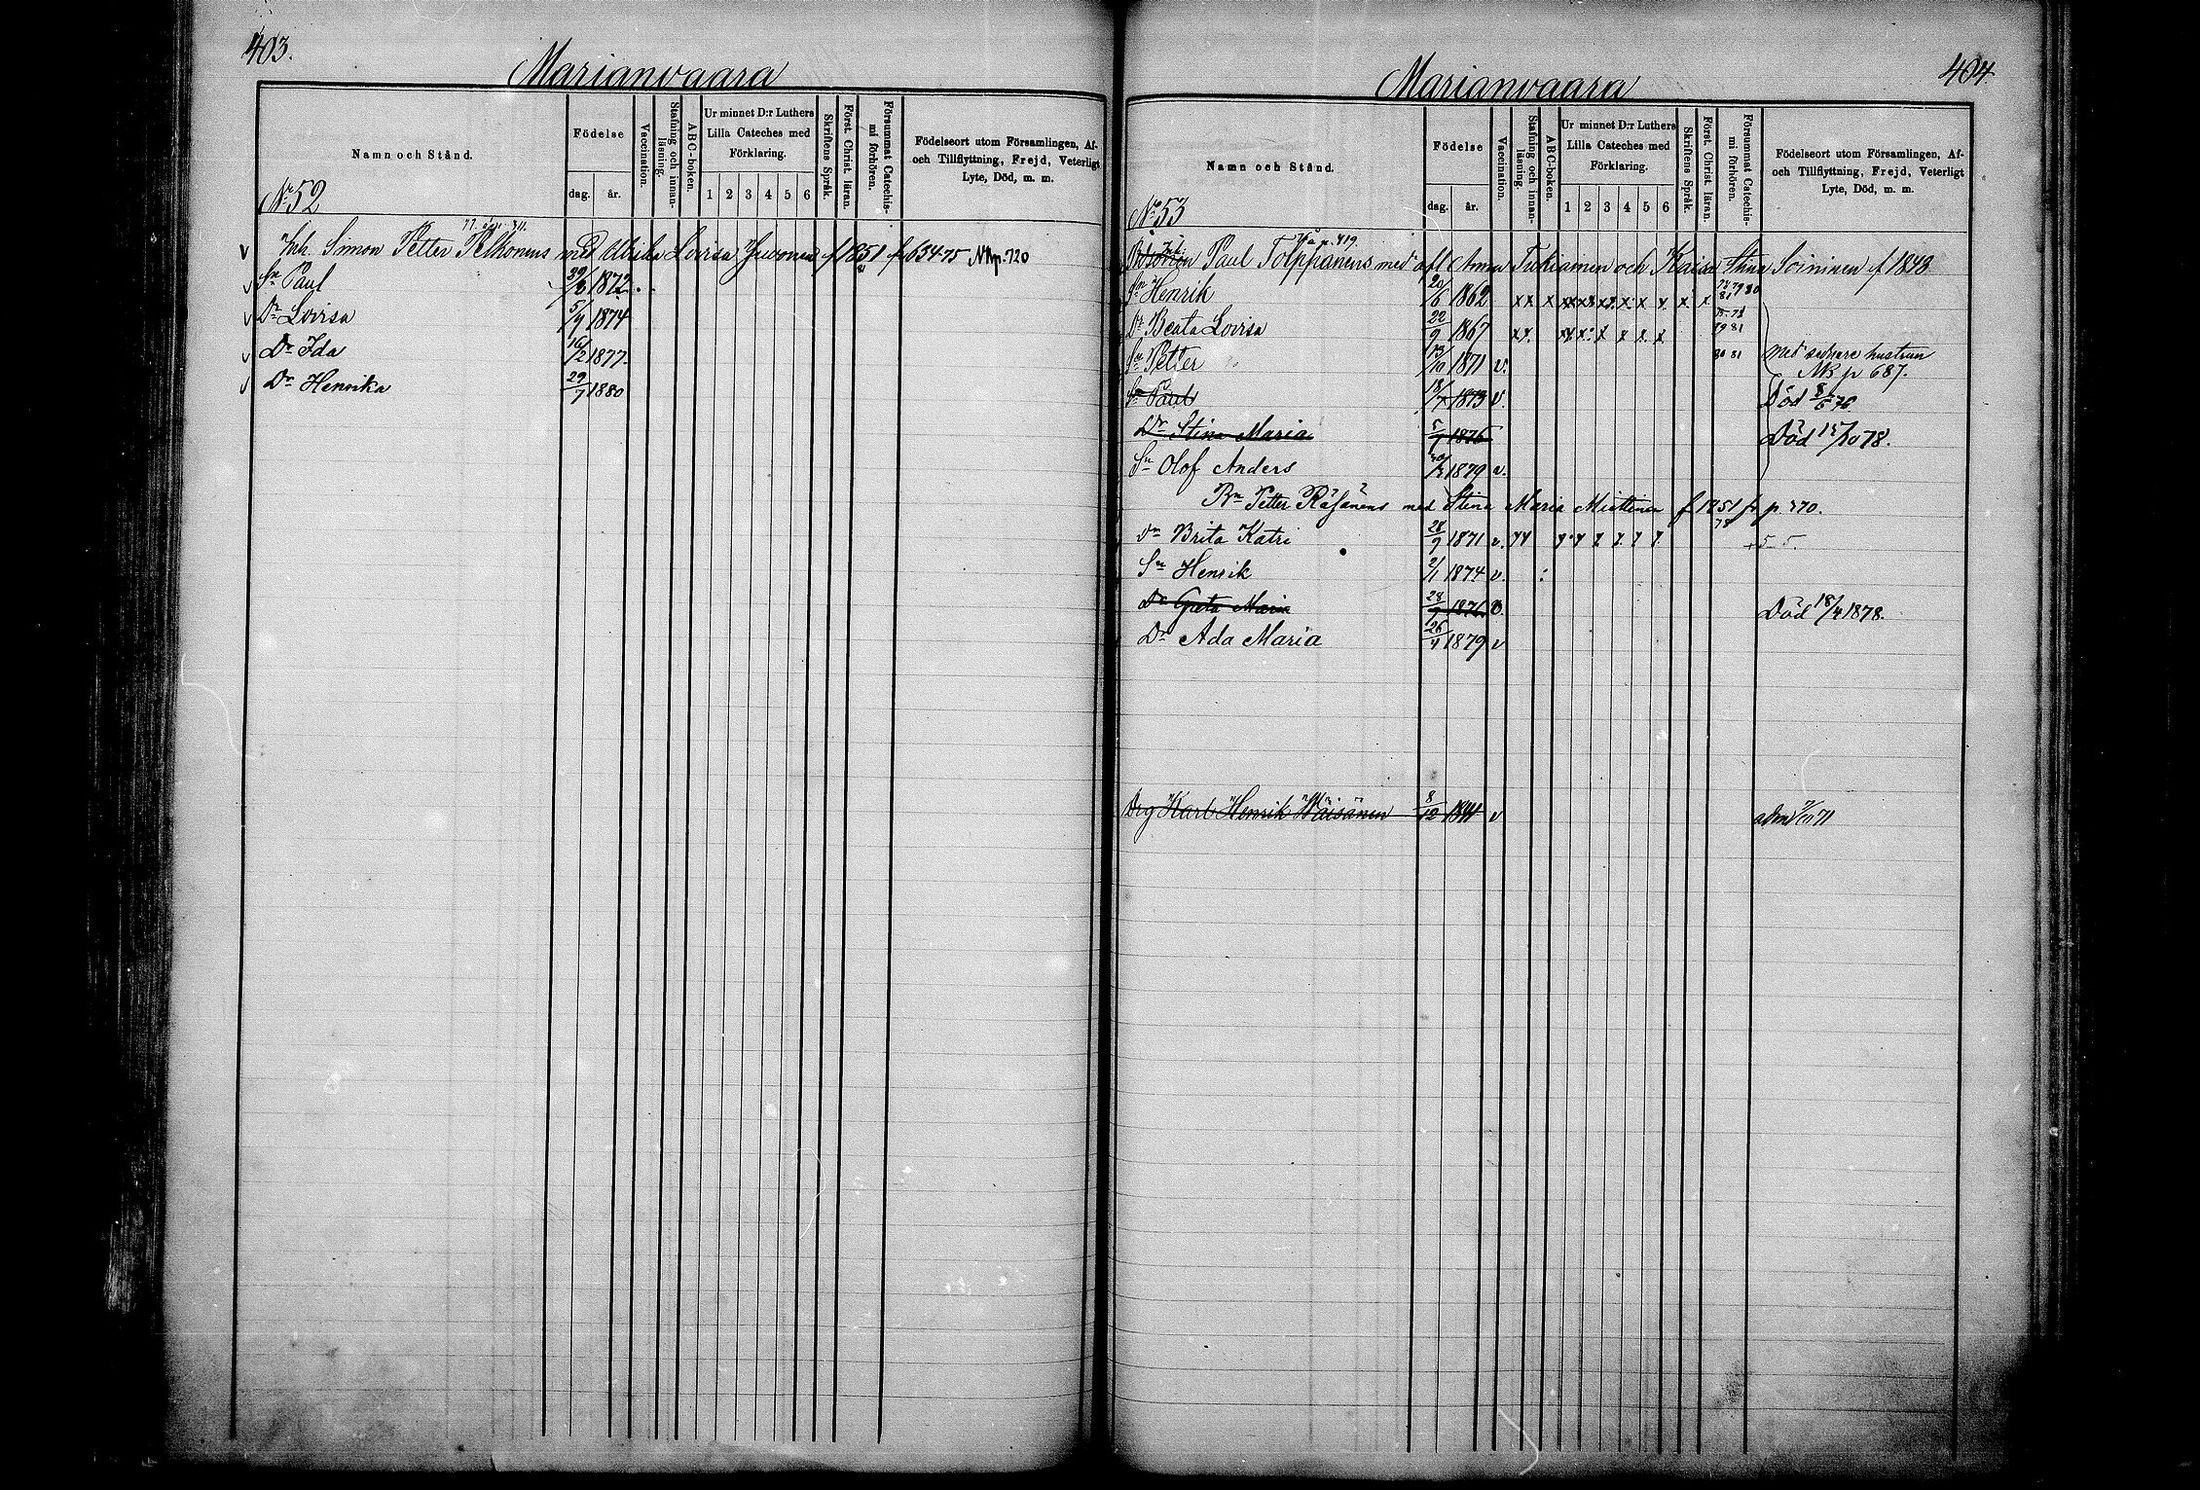 403.
Marianvaara
Namn och Stånd.
Födelse
dag. år.
Vaccination.
Stafning och innan-läsning.
ABC-boken.
Ur minnet D:r Luthers
Lilla Cateches med
Förklaring.
1 2 3 4 5 6
Skriftens Språk.
Först. Christ. läran.
Försummat Catechis-mi förhören.
Födelseort utom Församlingen, Af-
och Tillflyttning, Frejd, Veterligt
Lyte, Död, m. m.
No 52
Inh. Simon Petter Pelkonens med Ulrika Lovisa f 1851 fr 634-75 Nkp. 720
Sn Paul 29/8 1872
Dr Lovisa 5/7 1874
Dr Ida 16/2 1877
Dr Henrika 29/7 1880
404
Marianvaara
Namn och Stånd.
Födelse
dag. år.
Vaccination.
Stafning och innan-läsning.
ABC-boken.
Ur minnet D:r Luthers
Lilla Cateches med
Förklaring.
1 2 3 4 5 6
Skriftens Språk.
Först. Christ. läran.
Försummat Catechis-mi förhören.
Födelseort utom Församlingen, Af-
och Tillflyttning, Frejd, Veterligt
Lyte, Död, m. m.
No 53
p. 419
Inh. Paul Tolppanens med afl Anna Tukiainen och Kaisa Stina Soininen f 1848
Sn Henrik 20/6 1862 x x x x x x x x x x x 79 80 81
Dr Beata Lovisa 22/9 1867 x x x x x x x x 79 81
Sn Petter 13/10 1871 v. 80 81 med senare hustrun
Nk p 687.
Sn Paul 18/7 1873 v. Död 8/6 76
Dr Stina Maria 5/7 1876 Död 15/10 78.
Sn Olof Anders 1879 v.
Bn Petter Räsänens med Stina Maria Miettinen f 1851 fr p. 370.
Dr Brita Katri 28/9 1871 v.
Sn Henrik 2/1 1874 v.
Dr Greta Maria 28/7 1876 v. Död 18/4 1878.
Dr Ada Maria 26/4 1879 v
Drg Karl Henrik Wäisänen 8/12 1844 v